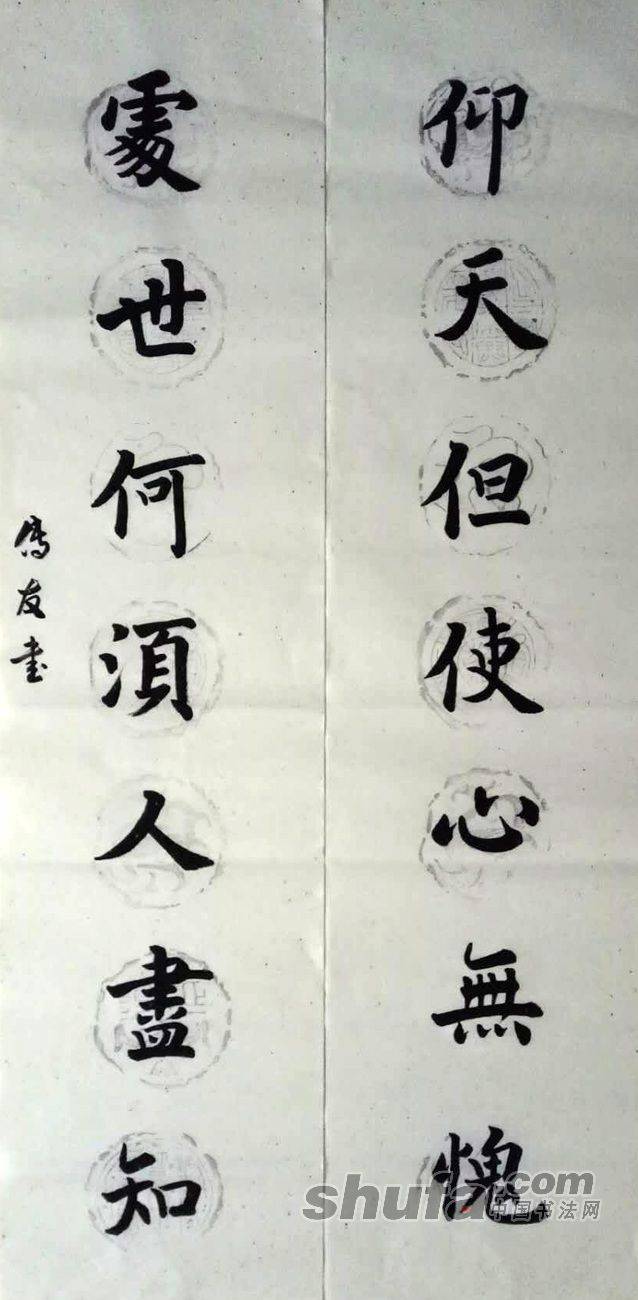 仰天但使心無愧
處世何須人盡知
傅友書
shufa.com
中国书法网